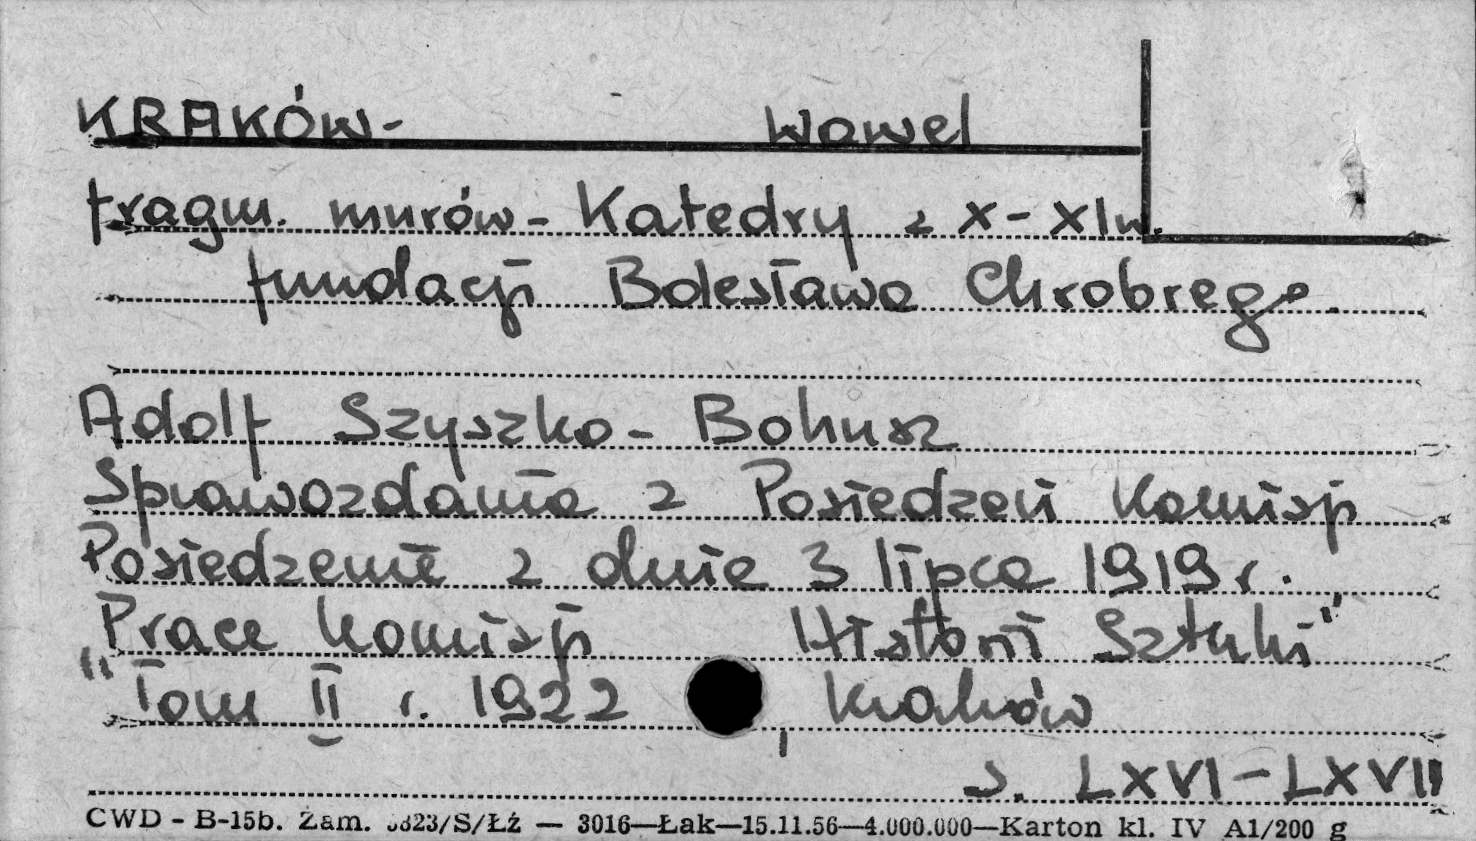 KRAKÓW- Wawel
fragm. murów - Katedry z X-XI w.
fundacji Bolesława Chrobrego.
Adolf Szyszko-Bohusz
Sprawozdania z Posiedzeń Komisji
Posiedzenie z dnia 3 lipca 1919 r.
"Prace Komisji Historii Sztuki"
Tom II r. 1922 Kraków
s. LXVI-LXVII
CWD - B-15b. Zam. 3823/S/ŁŻ — 3016—Łak—15.11.56—4.000.000—Karton kl. IV A1/200 g